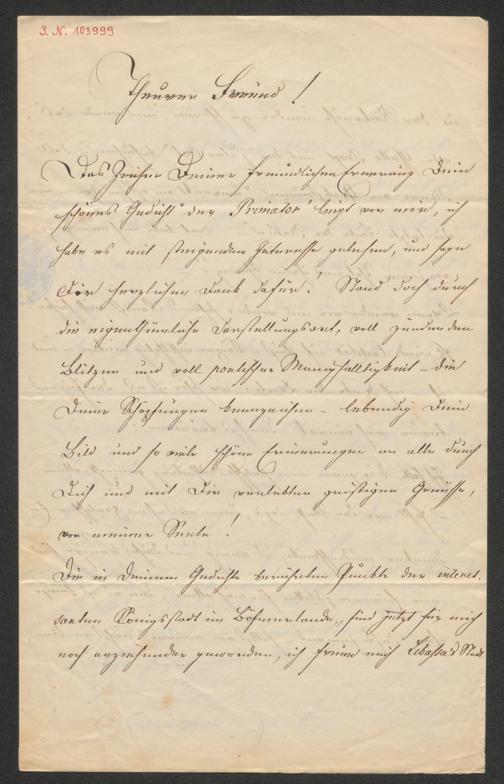 I. N. 103999
Theurer Freund!
Das Zeichen Deiner freundlichen Erinnerung Dein
schönes Gedicht "der Primator" liegt vor mir, ich
habe es mit steigendem Interesse gelesen, und sage
Dir herzlichen Dank dafür! Stand doch durch
die eigenthümliche Darstellungsart, voll zündenden
Blitzen und voll poetischer Mannigfaltigkeit – die
Deine Schöpfungen kennzeichnen – lebendig Dein
Bild und so viele schöne Erinnerungen an alle durch
Dich und mit Dir verlebten geistigen Genüsse,
vor meiner Seele!
Die in Deinem Gedichte berührten Punkte der interes-
santen Königsstadt im Böhmerlande, sind jetzt für mich
noch anziehender geworden, ich freue mich Libussa's Stadt